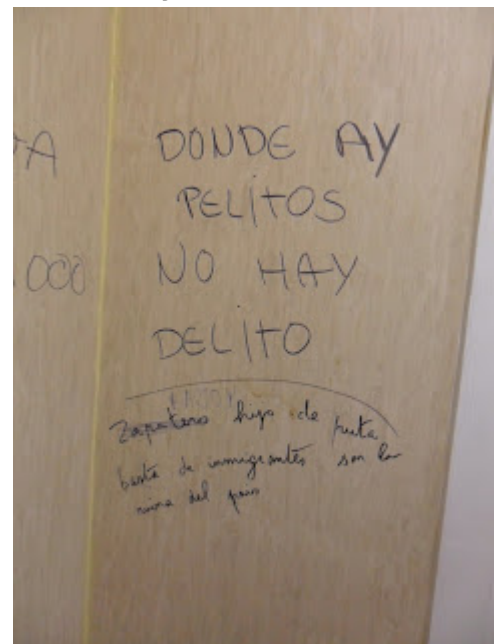 DONDE AY
PELITOS
NO HAY
DELITO
Zapatero hijo de puta
basta de inmigrantes son la
ruina del pais
A
000